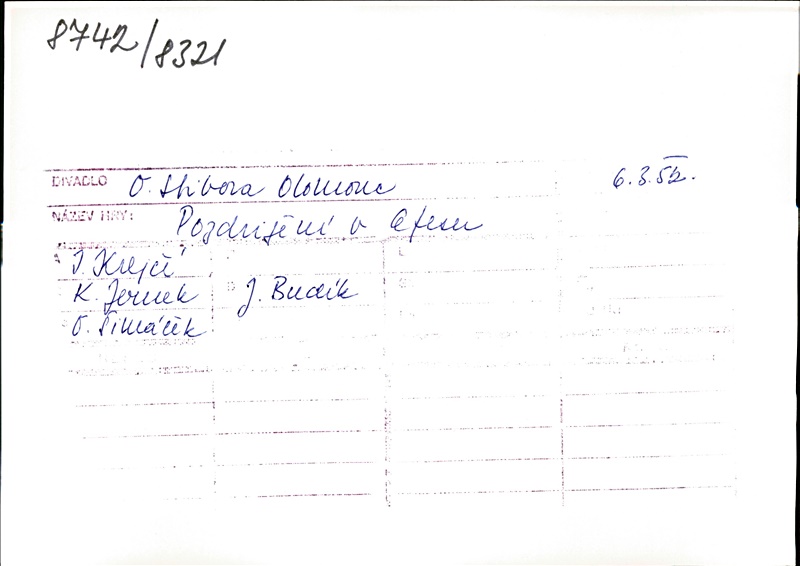 8742/8321
DIVADLO O. Stibora Olomouc 6.3.52.
NÁZEV HRY: Pozdvižení v Efesu
I. Krejčí
K. Jernek J. Budík
O. Šimáček